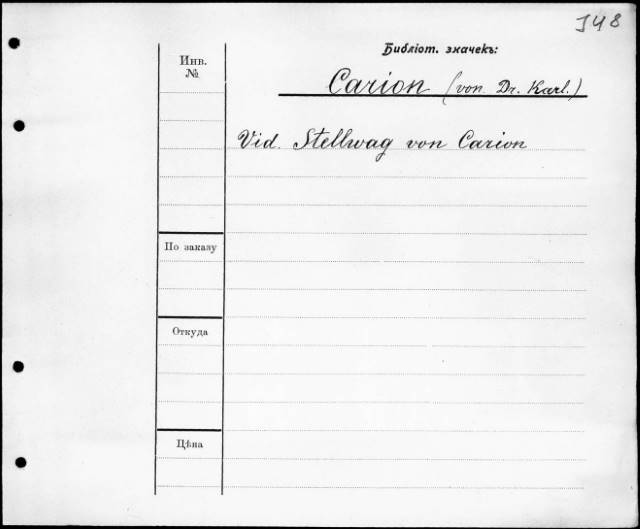 J48
Библіот. значекъ:
Инв.
№
Carion (von Dr. Karl.)
Vid. Stellwag von Carion
По заказу
Откуда
Цѣна